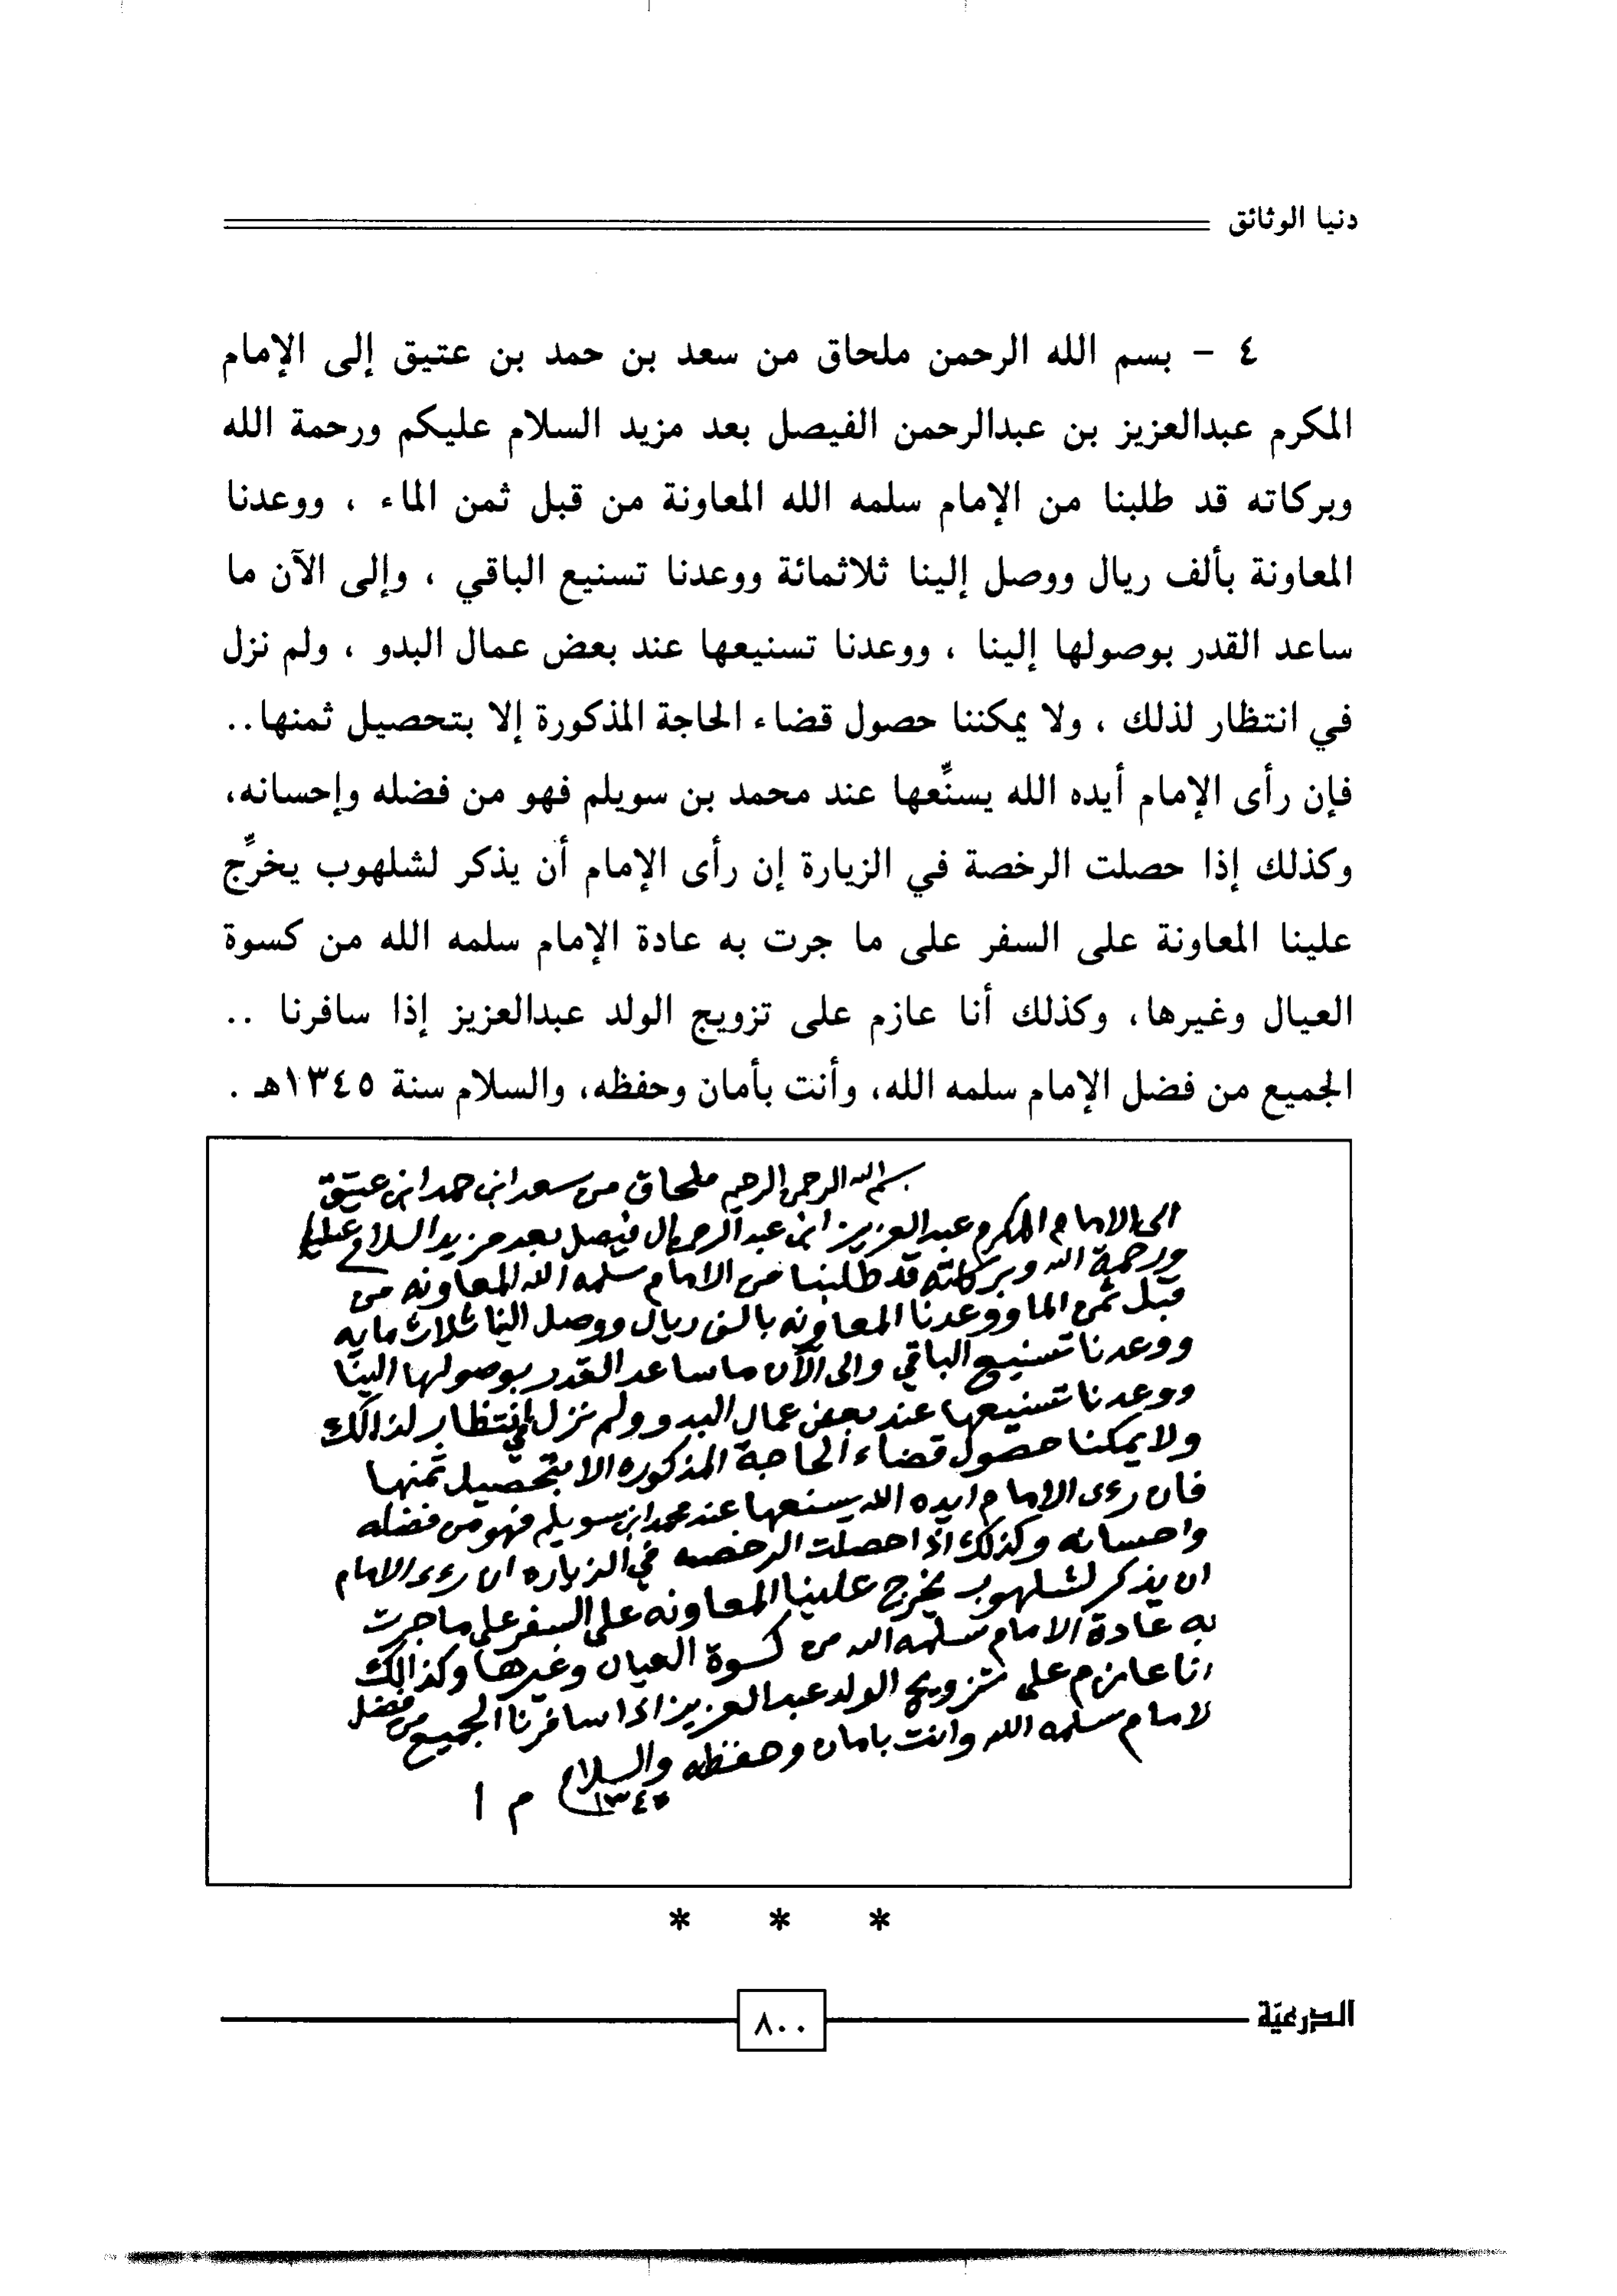 دنيا الوثائق
٤ - بسم الله الرحمن ملحاق من سعد بن حمد بن عتيق إلى الإمام
المكرم عبدالعزيز بن عبدالرحمن الفيصل بعد مزيد السلام عليكم ورحمة الله
وبركاته قد طلبنا من الإمام سلمه الله المعاونة من قبل ثمن الماء ، ووعدنا
المعاونة بألف ريال ووصل إلينا ثلاثمائة ووعدنا تسنيع الباقي ، وإلى الآن ما
ساعد القدر بوصولها إلينا ، ووعدنا تسنيعها عند بعض عمال البدو ، ولم نزل
في انتظار لذلك ، ولا يمكننا حصول قضاء الحاجة المذكورة إلا بتحصيل ثمنها..
فإن رأى الإمام أيده الله يسنِّعها عند محمد بن سويلم فهو من فضله وإحسانه،
وكذلك إذا حصلت الرخصة في الزيارة إن رأى الإمام أن يذكر لشلهوب يخرِّج
علينا المعاونة على السفر على ما جرت به عادة الإمام سلمه الله من كسوة
العيال وغيرها، وكذلك أنا عازم على تزويج الولد عبدالعزيز إذا سافرنا ..
الجميع من فضل الإمام سلمه الله، وأنت بأمان وحفظه، والسلام سنة ١٣٤٥هـ .
بسم الله الرحمن الرحيم ملحاق من سعد ابن حمد ابن عتيق
الى الامام المكرم عبدالعزيز ابن عبدالرحمن ال فيصل بعد مزيد السلام عليكم
ورحمة الله وبركاته قد طلبنا من الامام سلمه الله المعاونه من
قبل ثمن الما ووعدنا المعاونه بالف ريال ووصل الينا ثلاث مايه
ووعدنا تسنيع الباقي والى الآن ما ساعد القدر بوصولها الينا
ووعدنا تسنيعها عند بعض عمال البدو ولم نزل في انتظار لذالك
ولا يمكننا حصول قضاء الحاجة المذكوره الا بتحصيل ثمنها
فان رءى الامام ايده الله يسنعها عند محمد ابن سويلم فهو من فضله
واحسانه وكذلك اذا حصلت الرخصه في الزياره ان رءى الامام
ان يذكر لشلهوب يخرج علينا المعاونه على السفر على ما جرت
به عادة الامام سلمه الله من كسوة العيال وغيرها وكذالك
انا عازم على تزويج الولد عبدالعزيز اذا سافرنا الجميع من فضل
لامام سلمه الله وانت بامان وحفظه والسلام
م ١
* * *
الدرعيّة
٨٠٠